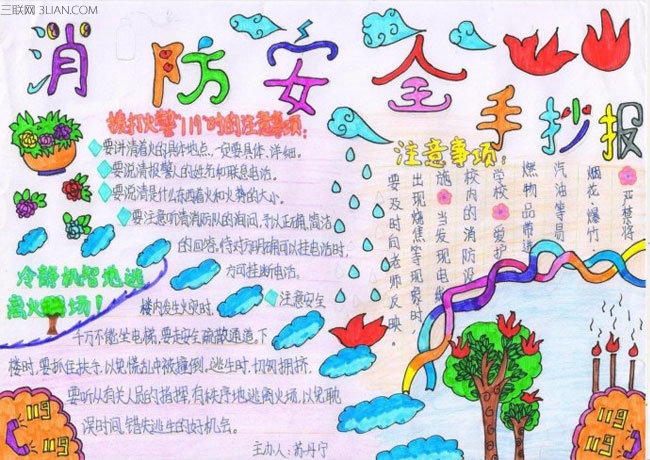 三联网 3LIAN.COM
消防安全手抄报
拨打火警"119"时的注意事项:
要讲清着火的具体地点,一定要具体、详细。
要说清报警人的姓名和联系电话。
要说清是什么东西着火和火势的大小。
要注意听清消防队的询问,予以正确,简洁
的回答,待对方明确可以挂电话时,
方可挂断电话。
注意安全
冷静机智地逃
离火场!
楼内发生火灾时,
千万不能坐电梯,要走安全疏散通道。下
楼时,要抓住扶手,以免慌乱中被撞倒。逃生时,切勿拥挤,
要听从有关人员的指挥,有秩序地逃离火场,以免耽
误时间,错失逃生的好机会。
主办人:苏丹宁
注意事项:
严禁将
烟花、爆竹
汽油等易
燃物品带进
学校 爱护
校内的消防设
施 当发现电线
出现烧焦等现象时,
要及时向老师反映。
119
119
119
119